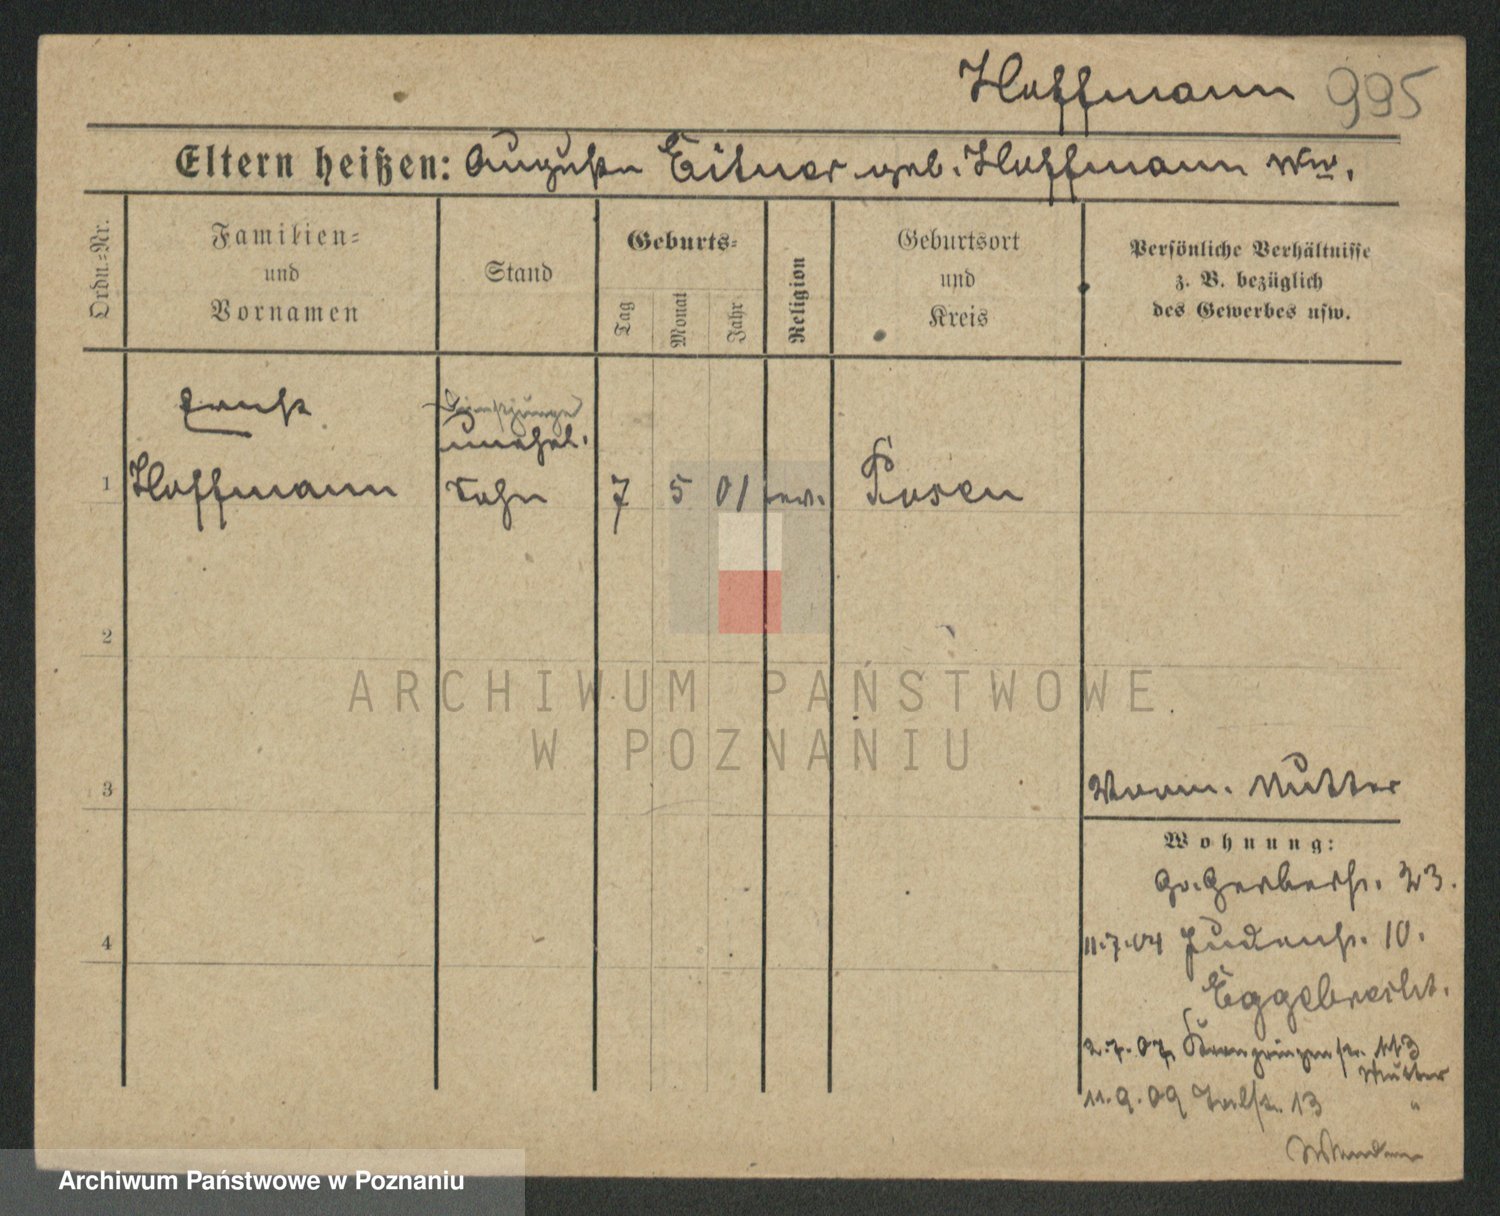 Hoffmann 995
Eltern heißen: Auguste Eitner geb. Hoffmann Ww.
Ordn.-Nr.
Familien-
und
Vornamen
Stand
Geburts-
Tag
Monat
Jahr
Religion
Geburtsort
und
Kreis
Persönliche Verhältnisse
z. B. bezüglich
des Gewerbes usw.
Ernst
Dienstjunge
unehel.
1 Hoffmann Sohn 7 5 01 ev. Posen
2
ARCHIWUM PAŃSTWOWE
W POZNANIU
3
Vorm. Mutter
Wohnung:
Gr. Gerberstr. 23.
4
11.7.04 Judenstr. 10.
Eggebrecht.
2.7.07 Kronprinzenstr. 113
Mutter
11.9.09 Talstr. 13 "
Archiwum Państwowe w Poznaniu